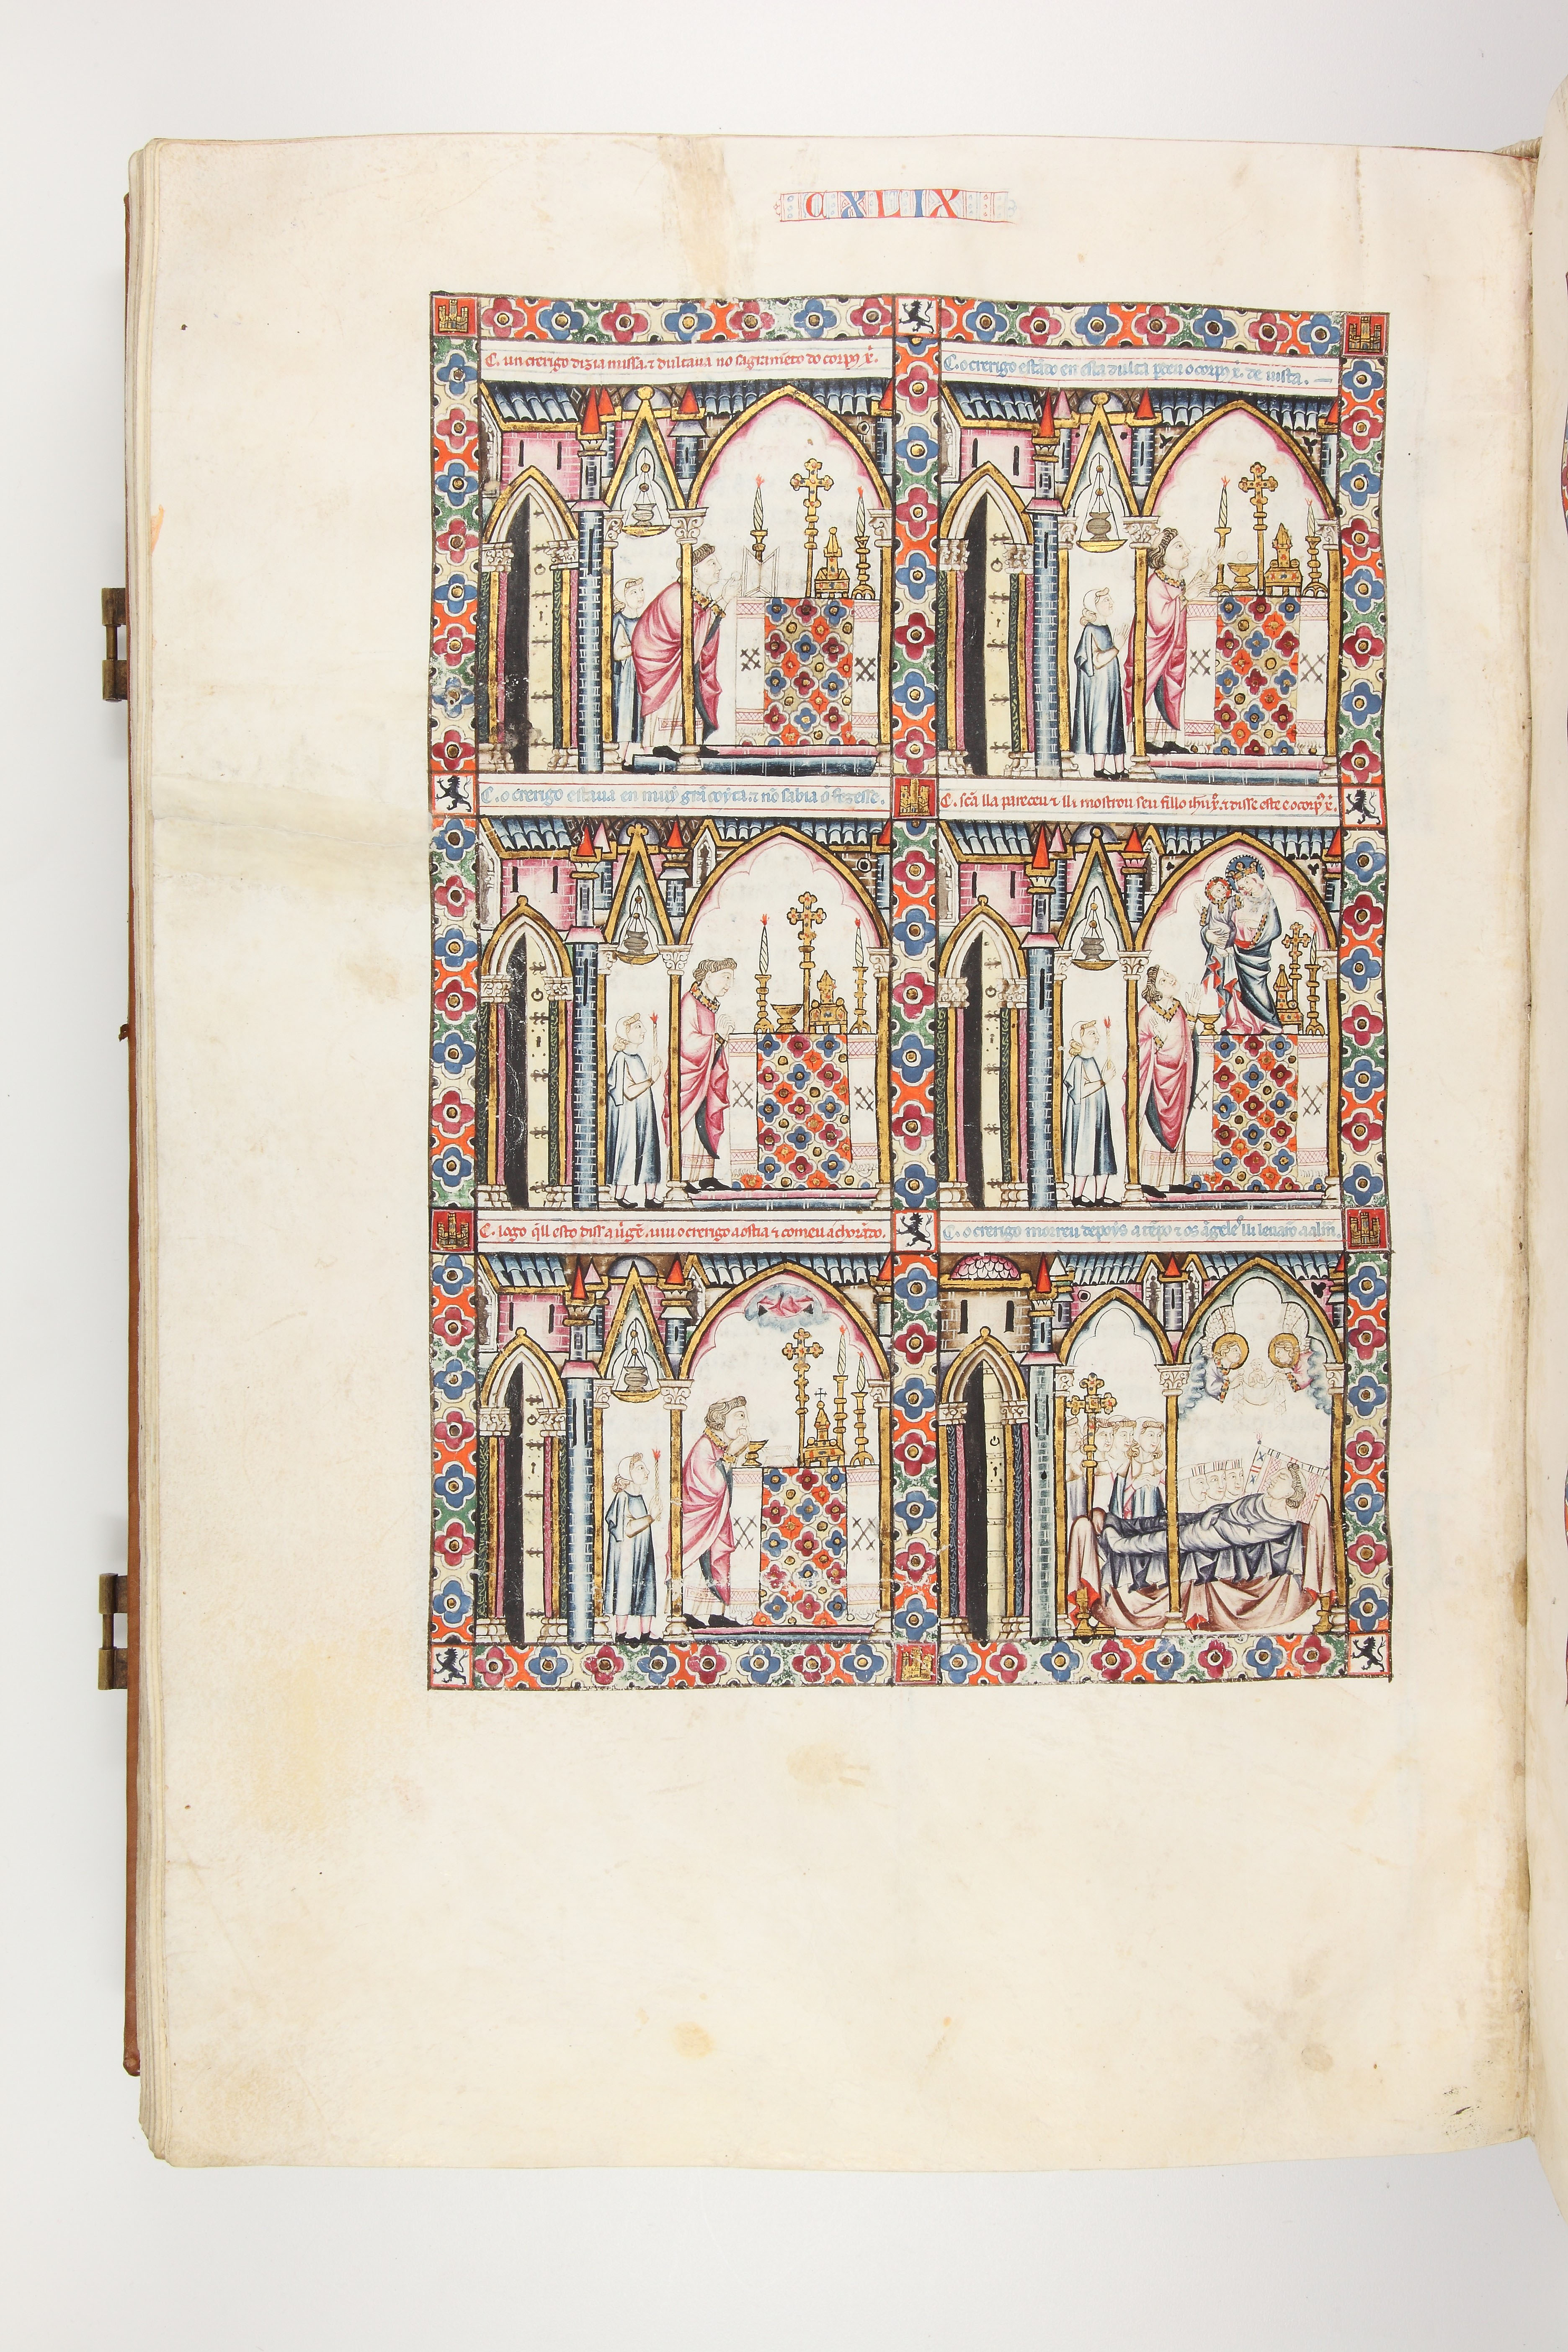 CXLIX
C. un crerigo dizia missa. ⁊ dultaua no sagramẽto do corpꝰ x̃.
C. o crerigo estãdo en esta dulta perdeu o corpꝰ x̃. de uista.
C. o crerigo estaua en muy grã coyta. ⁊ nõ sabia q̃ fezesse.
C. sc̃a Ma pareceu ⁊ lli mostrou seu fillo ih̃u x̃. ⁊ disse este e o corpꝰ x̃.
C. logo q̃ll esto diss a uirgẽ. uiu o crerigo a ostia ⁊ comeu a chorãdo.
C. o crerigo morreu depoys a tẽpo ⁊ os ãgeles lli leuarõ a alma.